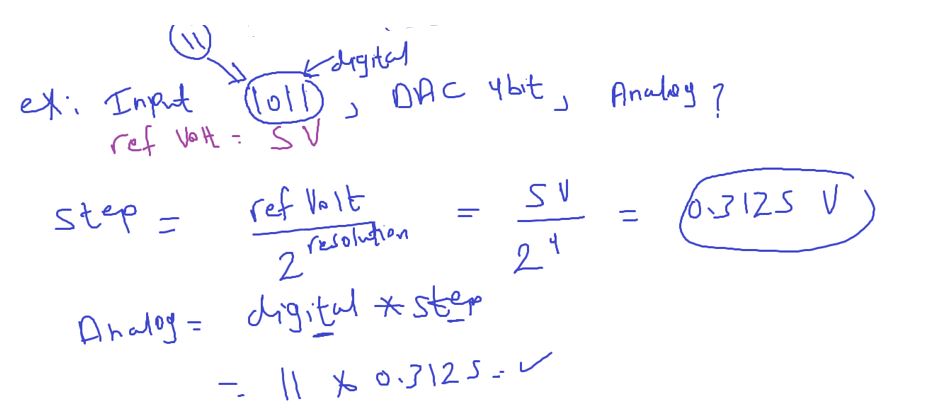 11
digital
ex: Input 1011, DAC 4bit, Analog?
ref Volt = 5V
Step = ref Volt / 2^resolution = 5V / 2^4 = 0.3125 V
Analog = digital * step
= 11 * 0.3125 = ✓